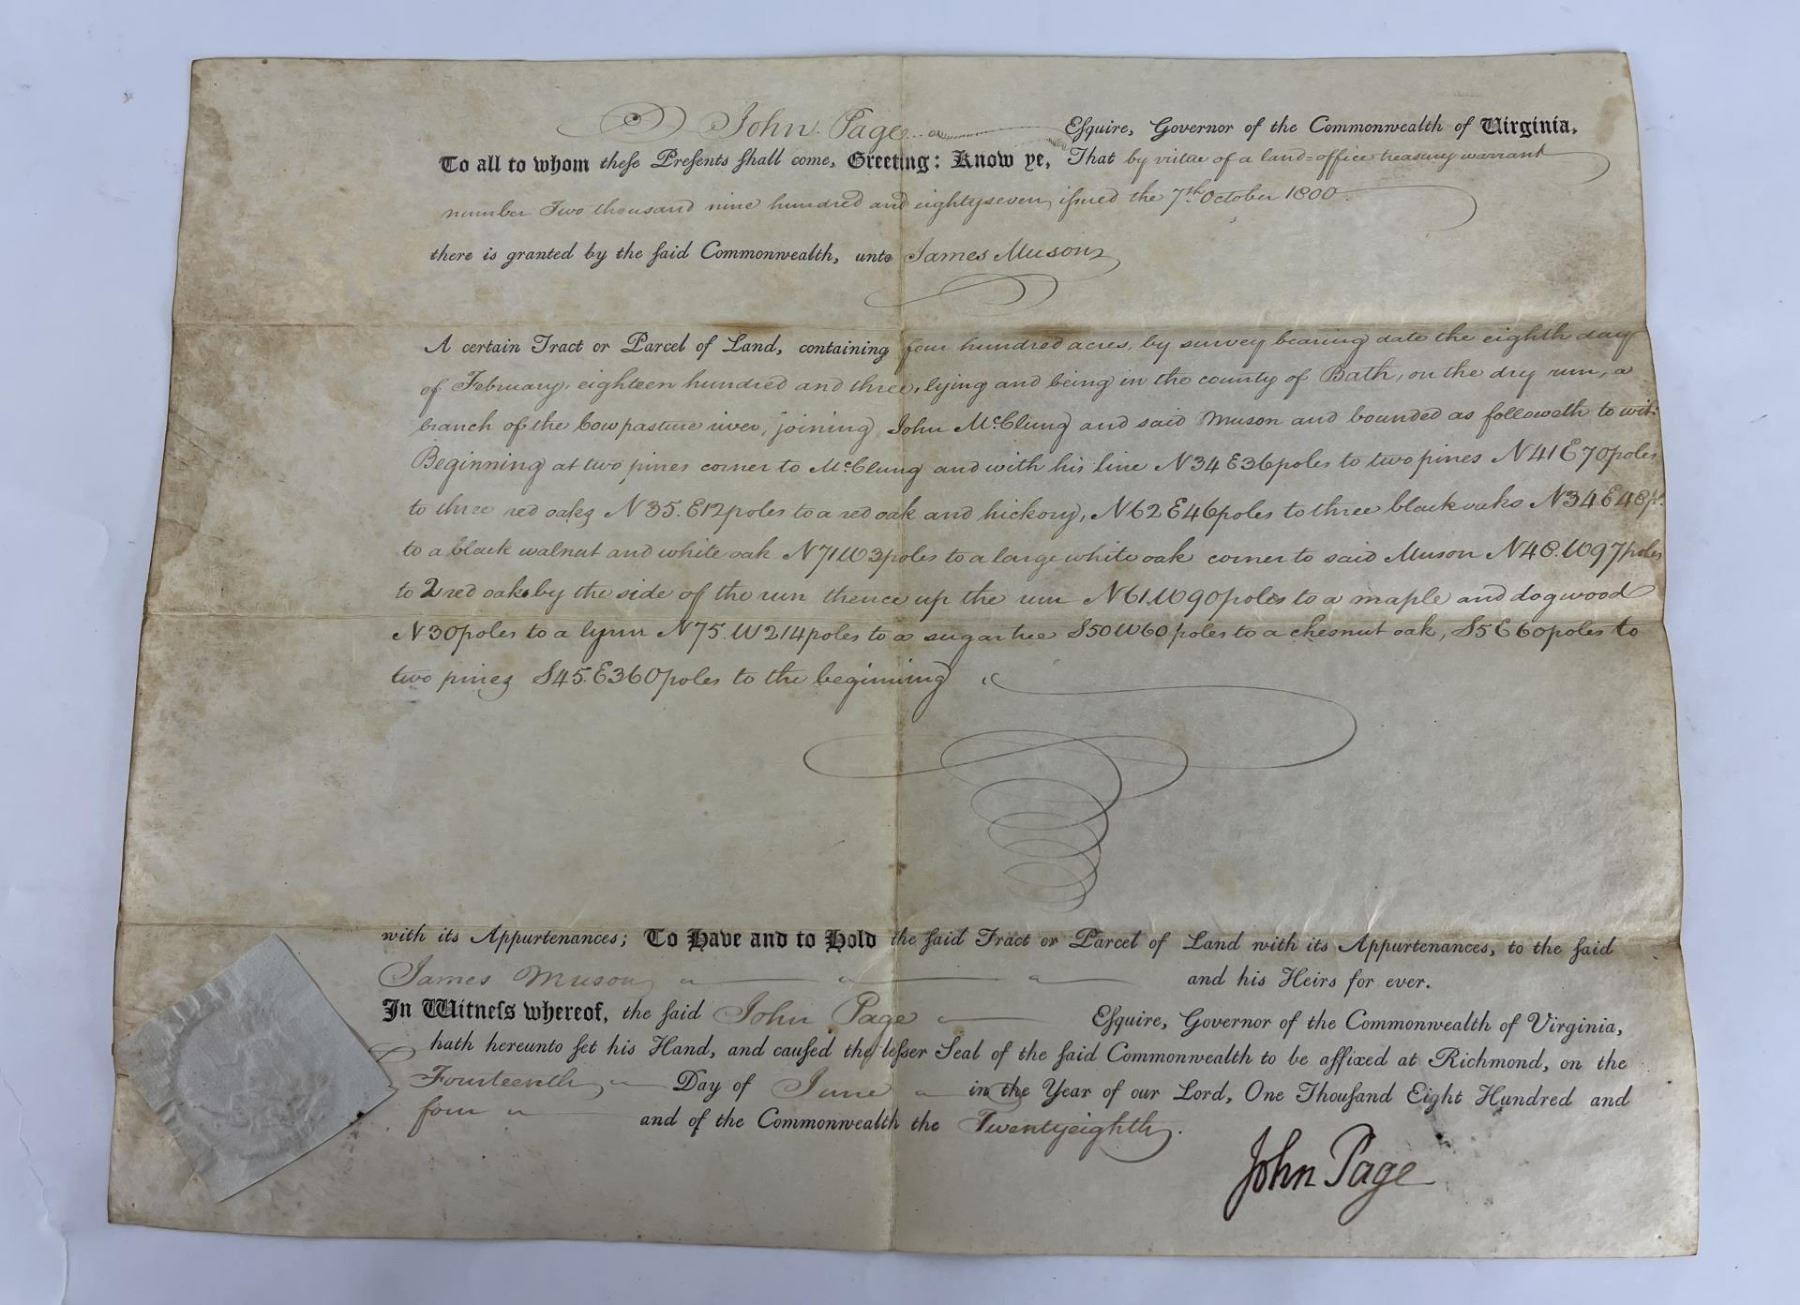 John Page Esquire, Governor of the Commonwealth of Virginia,
To all to whom these Presents shall come, Greeting: Know ye, That by virtue of a land=office treasury warrant
number Two thousand nine hundred and eightyseven, issued the 7th October 1800
there is granted by the said Commonwealth, unto James Muson
A certain Tract or Parcel of Land, containing four hundred acres, by survey bearing date the eighth day
of February, eighteen hundred and three, lying and being in the county of Bath, on the dry run, a
branch of the Cowpasture river, joining John McClung and said Muson and bounded as followeth to wit.
Beginning at two pines corner to McClung and with his line N34 E36poles to two pines N41E70poles
to three red oaks N35.E12poles to a red oak and hickory, N62E46poles to three black oaks N34E48ps
to a black walnut and white oak N71W3poles to a large white oak corner to said Muson N48.W97poles
to 2 red oaks by the side of the run thence up the run N61.W90poles to a maple and dogwood
N30poles to a lynn N75.W214poles to a sugar tree S50W60poles to a chesnut oak, S5E60poles to
two pines S45.E360poles to the beginning
with its Appurtenances; To Have and to Hold the said Tract or Parcel of Land with its Appurtenances, to the said
James Muson and his Heirs for ever.
In Witness whereof, the said John Page Esquire, Governor of the Commonwealth of Virginia,
hath hereunto set his Hand, and caused the lesser Seal of the said Commonwealth to be affixed at Richmond, on the
Fourteenth Day of June in the Year of our Lord, One Thousand Eight Hundred and
four and of the Commonwealth the Twentyeighth.
John Page